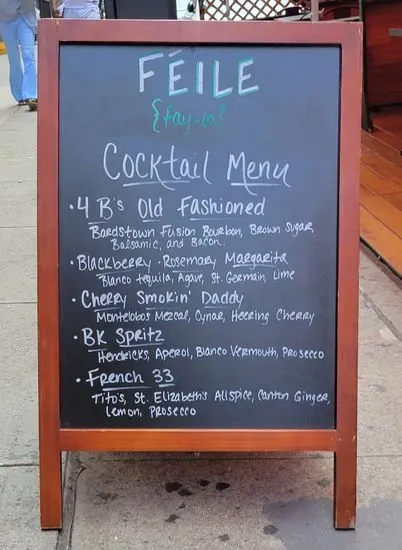 FÉILE
{fay-la}
Cocktail Menu
• 4 B's Old Fashioned
Bardstown Fusion Bourbon, Brown Sugar,
Balsamic, and Bacon.
• Blackberry-Rosemary Margarita
Blanco tequila, Agave, St. Germain, Lime
• Cherry Smokin' Daddy
Montelobos Mezcal, Cynar, Heering Cherry
• BK Spritz
Hendricks, Aperol, Bianco Vermouth, Prosecco
• French 33
Tito's, St. Elizabeth's Allspice, Canton Ginger,
Lemon, Prosecco